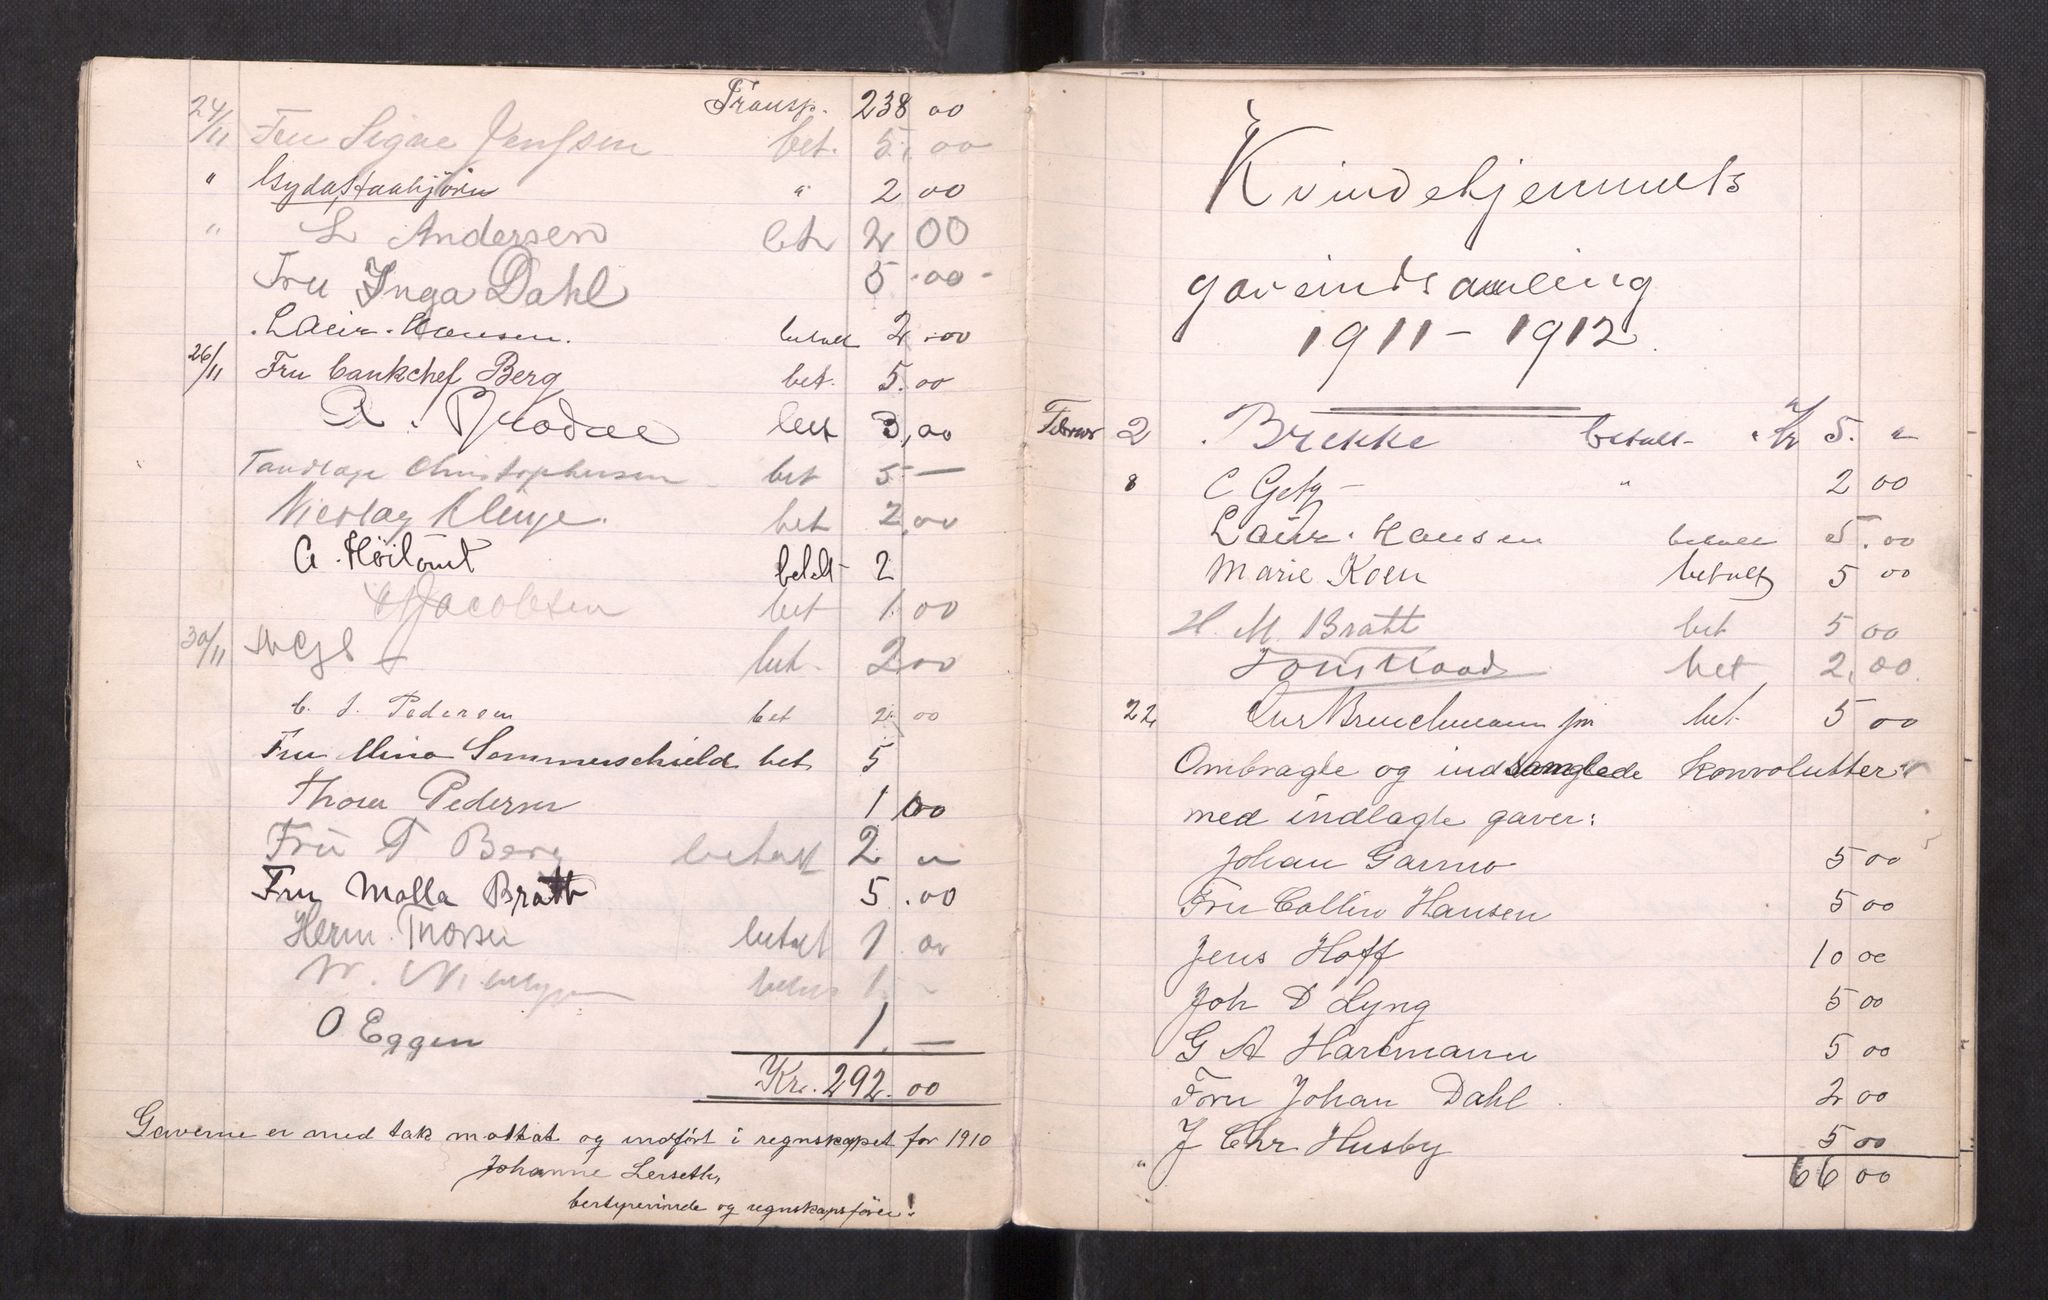 Transp. 238 00
24/11 Fru Signe Jenssen bet. 5. 00
" Gyda Staahjörn " 2 00
" L Andersen bet 2 00
Fru Inga Dahl 5.00-
Laur. Hansen. betalt 2.00
26/11 Fru bankchef Berg bet. 5.00
A. bet 3,00
Tandlæge Christophersen bet 5 —
Nicolay Kluge. bet 2,00
A. Höitomt betalt 2
Jacobsen bet 1.00
30/11 bet. 2 00
C. J. Pedersen bet 2 00
Fru Mina Sommerschield bet 5
Thora Pedersen 1 00
Fru T Berg betalt 2 "
Fru Malla Bratt 5.00
Herm. Thorsen betalt 1.00
W. 1. -
O. Eggen 1. —
Kr. 292.00
Gaverne er med tak mottat og indført i regnskapet for 1910
Johanne Lerseth,
bestyrerinde og regnskapsfører!
Kvindehjemmets
gaveindsamling
1911 - 1912.
Februar 2 Brekke betalt Kr 5. "
8 C Getz - " 2 00
Laur. Hansen betalt 5.00
Marie Koen betalt 5 00
H. M. Bratt bet 5 00
bet 2.00
22 Chr Bruchmann jnr bet 5 00
Ombragte og indsamlede konvolutter
med indlagte gaver:
Johan Garmo 5 00
Fru Collin Hansen 5 00
Jens Hoff 10 00
Joh D Lyng 5 00
G A Hartmann 5 00
Fru Johan Dahl. 2 00
" J Chr Husby 5 00
66 00